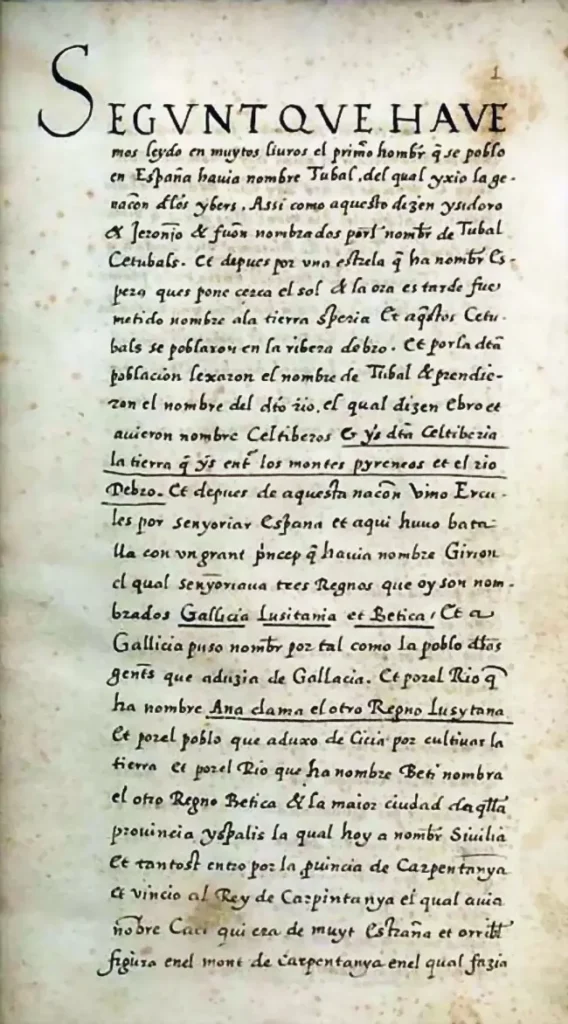 1
SEGVNT QVE HAVE
mos leydo en muytos liuros el primo hombr q̃ se poblo
en España hauia nombre Tubal, del qual yxio la ge-
nacon dlos ybers. Assi como aquesto dizen ysidoro
& Jeronjo & fuon nombrados porl nombr̃ de Tubal
Cetubals. Et depues por vna estrela q̃ ha nombr̃ Es-
pero ques pone cerca el sol & la ora es tarde fue
metido nombre ala tierra speria Et aq̃stos Cetu-
bals se poblaron en la ribera debro. Et porla dta
poblacion lexaron el nombre de Tubal & prendie-
ron el nombre del dto rio, el qual dizen Ebro et
auieron nombre Celtiberos & ys dta Celtiberia
la tierra q̃ ys ent̃ los montes pyreneos et el rio
Debro. Et depues de aquesta nacon vino Ercu-
les por senyoriar España et aqui huuo bata
lla con vn grant p̃ncep q̃ hauia nombre Girion
el qual señyoriaua tres Regnos que oy son nom-
brados Gallicia Lusitania et Betica, Et a
Gallicia puso nombr̃ por tal como la poblo dlas
gent̃s que aduzia de Gallacia. Et porel Rio q̃
ha nombre Ana clama el otro Regno Lusytana
Et porel poblo que aduxo de Cicia por cultiuar la
tierra et porel Rio que ha nombre Beti nombra
el otro Regno Betica & la maior ciudad daq̃lla
prouincia yspalis la qual hoy a nombr̃ Siuilia
Et tantost entro por la puincia de Carpentanya
et vincio al Rey de Carpintanya el qual auia
nõbre Caci qui era de muyt estraña et orribl̃
figura enel mont de Carpentanya enel qual fazia